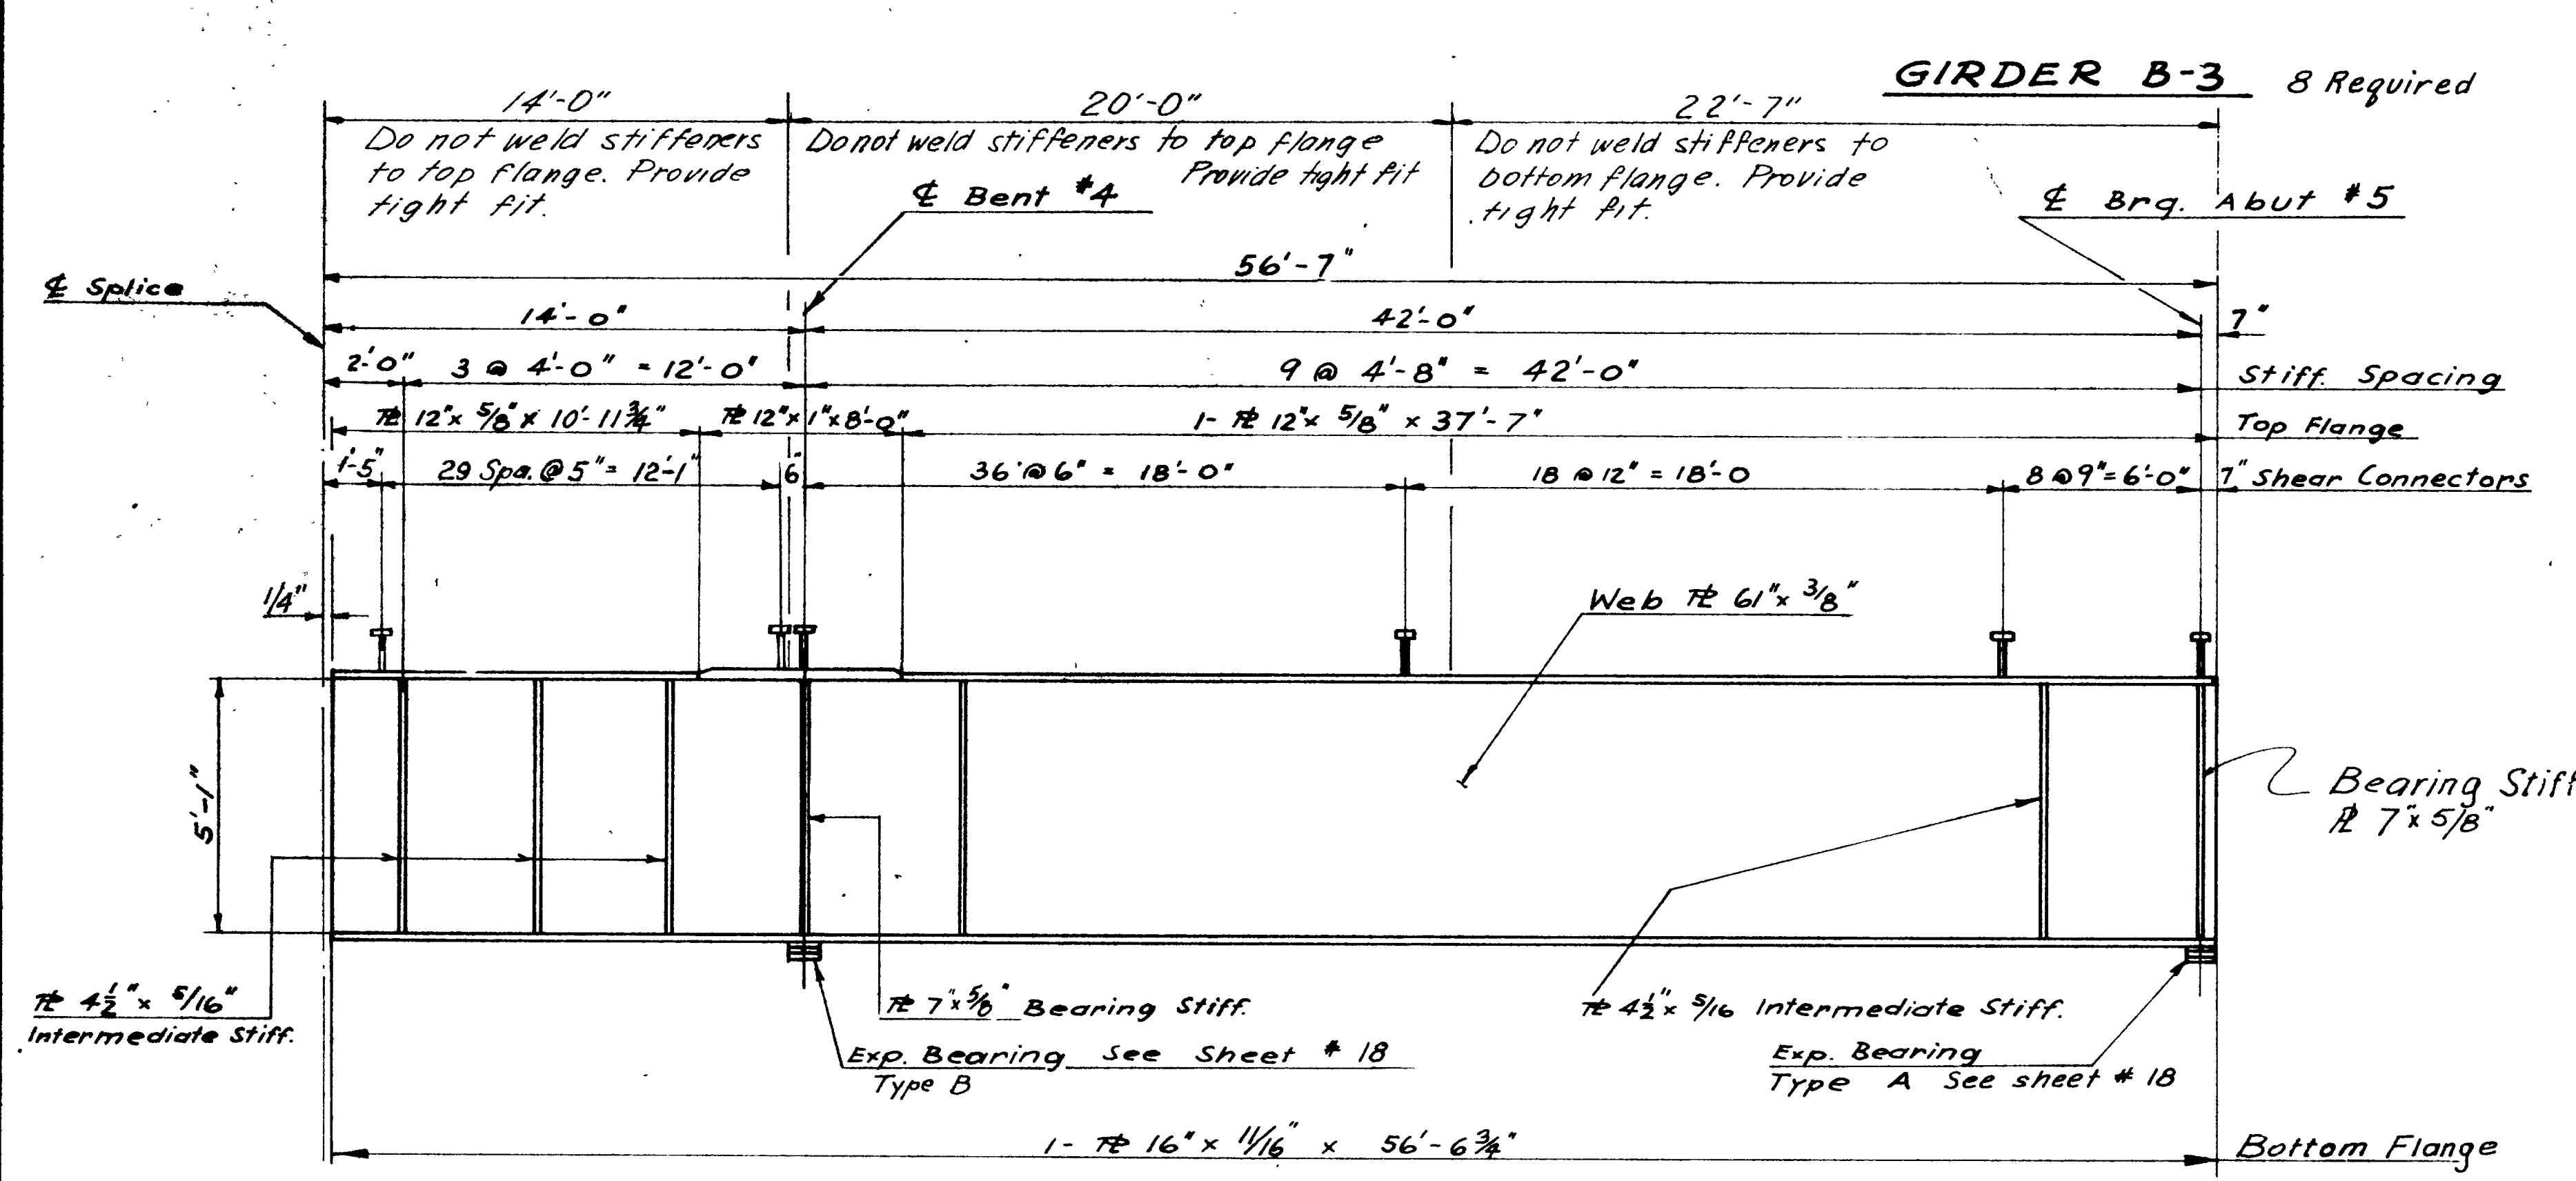 GIRDER B-3 8 Required
14'-0" 20'-0" 22'-7"
Do not weld stiffeners
to top flange. Provide
tight fit.
Do not weld stiffeners to top flange
Provide tight fit
Do not weld stiffeners to
bottom flange. Provide
tight fit.
℄ Bent #4
℄ Brg. Abut #5
56'-7"
℄ Splice
14'-0" 42'-0" 7"
2'-0" 3 @ 4'-0" = 12'-0" 9 @ 4'-8" = 42'-0" Stiff. Spacing
℄ 12" x 5/8" x 10'-11 3/4" ℄ 12" x 1" x 8'-0" 1- ℄ 12" x 5/8" x 37'-7" Top Flange
1'-5" 29 Spa. @ 5" = 12'-1" 6" 36 @ 6" = 18'-0" 18 @ 12" = 18'-0 8 @ 9" = 6'-0" 7" Shear Connectors
1/4"
Web ℄ 61" x 3/8"
5'-1"
Bearing Stiff
℄ 7" x 5/8"
℄ 4 1/2" x 5/16"
Intermediate Stiff.
℄ 7" x 5/8" Bearing Stiff.
℄ 4 1/2" x 5/16 Intermediate Stiff.
Exp. Bearing See Sheet # 18
Type B
Exp. Bearing
Type A See sheet # 18
1- ℄ 16" x 11/16" x 56'-6 3/4" Bottom Flange